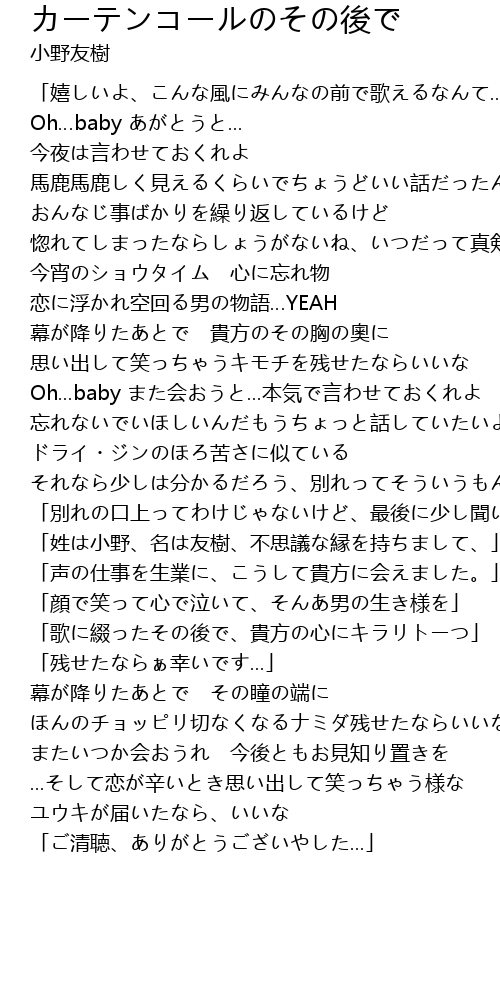 カーテンコールのその後で
小野友樹
「嬉しいよ、こんな風にみんなの前で歌えるなんて...
Oh...baby あがとうと...
今夜は言わせておくれよ
馬鹿馬鹿しく見えるくらいでちょうどいい話だったん
おんなじ事ばかりを繰り返しているけど
惚れてしまったならしょうがないね、いつだって真剣
今宵のショウタイム　心に忘れ物
恋に浮かれ空回る男の物語...YEAH
幕が降りたあとで　貴方のその胸の奥に
思い出して笑っちゃうキモチを残せたならいいな
Oh...baby また会おうと...本気で言わせておくれよ
忘れないでいほしいんだもうちょっと話していたいよ
ドライ・ジンのほろ苦さに似ている
それなら少しは分かるだろう、別れってそういうもん
「別れの口上ってわけじゃないけど、最後に少し聞い
「姓は小野、名は友樹、不思議な縁を持ちまして、」
「声の仕事を生業に、こうして貴方に会えました。」
「顔で笑って心で泣いて、そんあ男の生き様を」
「歌に綴ったその後で、貴方の心にキラリト一つ」
「残せたならぁ幸いです...」
幕が降りたあとで　その瞳の端に
ほんのチョッピリ切なくなるナミダ残せたならいいな
またいつか会おうれ　今後ともお見知り置きを
...そして恋が辛いとき思い出して笑っちゃう様な
ユウキが届いたなら、いいな
「ご清聴、ありがとうございやした...」